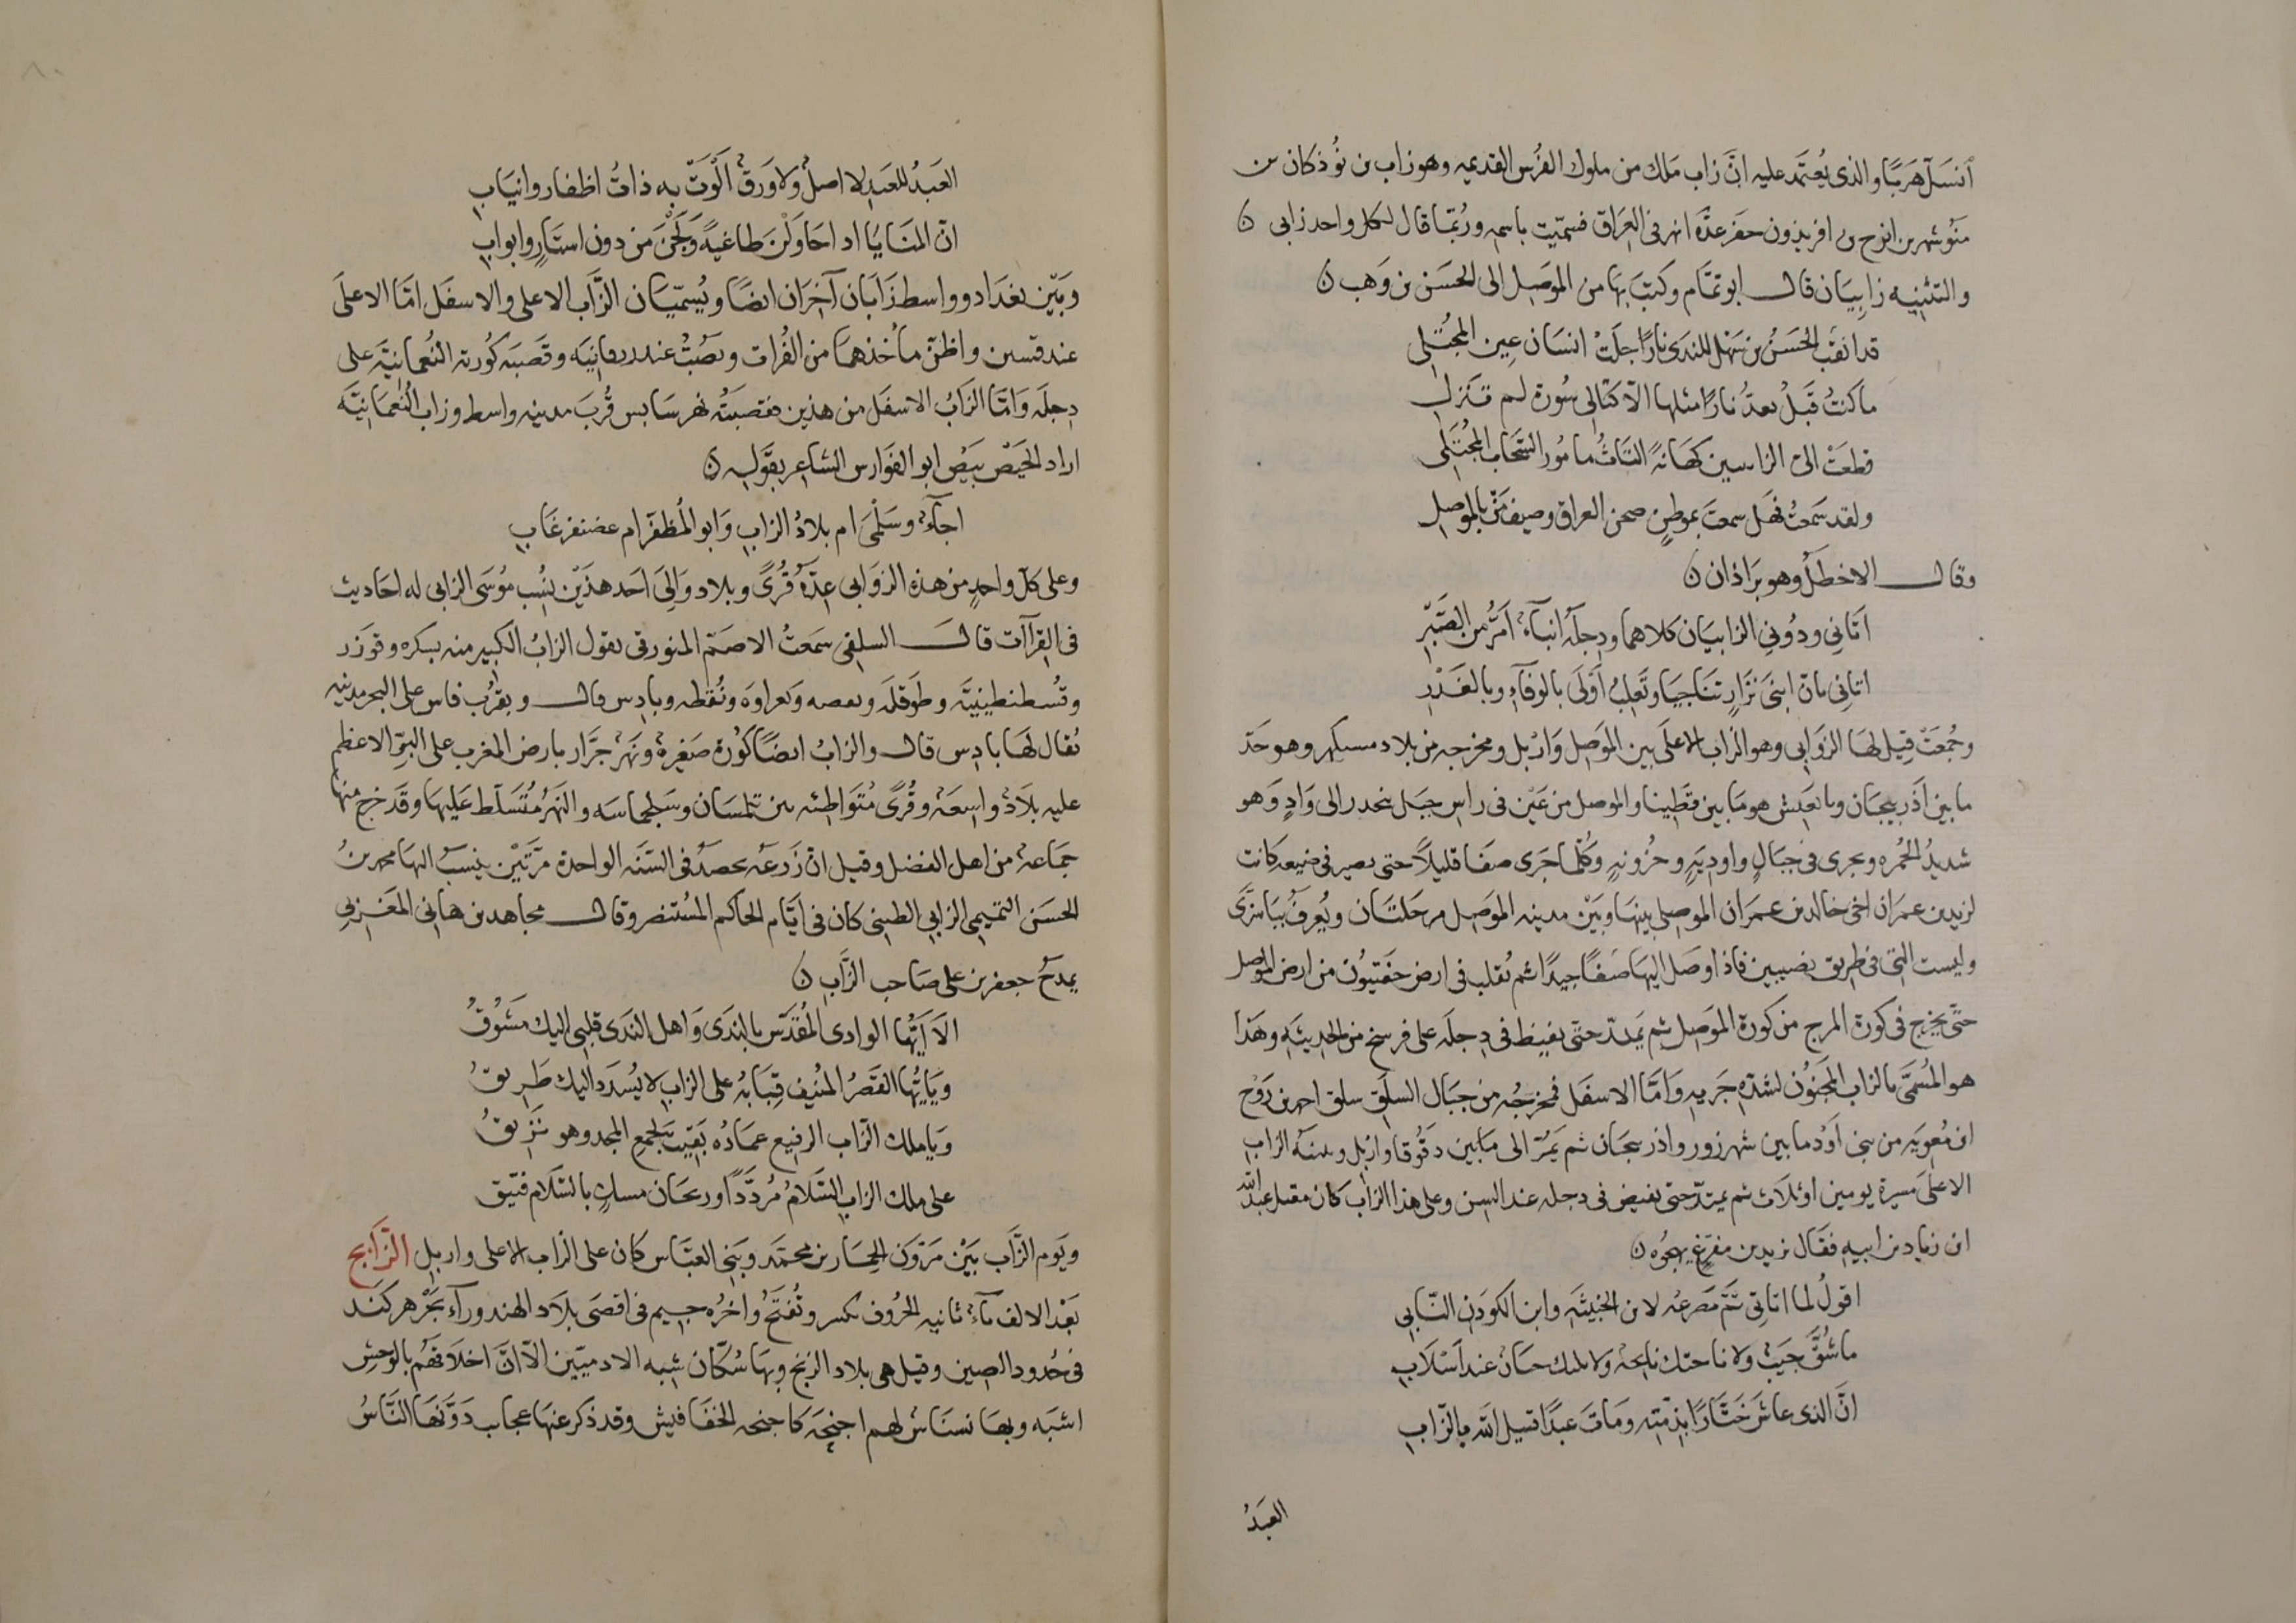 انسل هربًا والذى يُعتمد عليه انَّ زاب مَلك من ملوك الفُرس القديمه وهو زاب بن نُوذكان بن
مَنُوشهر بن ايرج بن افريذون حفر عدّة انهر فى العِرَاق فسمّيت باسمه ورُبّما قال لكل واحد زابى
والتثنيه زابِيَان قال ابو تمّام وكتبَ بها من الموَصِل الى الحَسَن بن وَهب
قد اثقَب الحَسَنُ بن سَهْل للندى نارًا جلَتْ انسَان عِين المجُتلى
ما كنتُ قَبلُ بعدُ نارًا مثلها الّا كتالى سُورة لم تنزل
قطعَتْ الىّ الزابيين هَبَاتُه التَاثُ مامُور السَّحَاب المجُتَلى
ولقد سَمعتُ فهَل سمعتَ بموطنٍ صحن العراق وصيف مَنّ بالموصل
وقال الاخطلُ وهو برَاذان
اتَانِى ودُونى الزابيَان كلاهما ودجلَةُ انبآءٌ اَمَرُّ من الصَّبْرِ
اتانى بانّ ابنَىْ نزَارٍ تنَاجيَا وتَغلِبُ اَوْلَى بالوفآءِ وبالغَدْرِ
وجُمعَتْ قِيل لهَا الزَوَابى وهو الزاب الاعلَى بين الموَصِل وَاربل ومخرجه من بلاد مسكهر وهو حَدّ
ما بين اذَربيجَان وبابغيش هو مَا بين قطَينا والموصل من عَيْن فى راس جبَل ينحدر الى وَادٍ وَهو
شديدُ الحُمره ويجرى فى جبَالٍ واودِيَةٍ وحُزونهٍ وكُلّما جَرى صَفَا قليلاً حتى يصير فى ضيعه كانت
لزيد بن عمرَان اخى خالد بن عمرَان الموصِلى بينها وبَيْن مدينه الموَصِل مرحَلتَان ويُعرفُ بباسزَّى
وليست التى فى طريق نصيبين فاذا وصَل اليهَا صَفَا جيدًا ثم يُقلب فى ارض حفتيون من ارض الموصل
حتّى يخرج فى كورة المرج من كورة الموَصِل ثم يمتدّ حتّى يفيض فى دِجلَه على فرسخ من الحديثَةِ وهَذَا
هو المُسَمَّى بالزاب المجنُون لشدّة جَريه وَامّا الاسفَل فمخرَجُه من جبَال السلَق سلق احمد بن رَوْح
ابن مُعويَه من بنى اَوْد ما بين شهرزور واذربيجَان ثم يَمُرّ الى مَا بين دقُوقا واربُل وبينَه الزاب
الاعلَى مَسيرة يومين او ثلاث ثم يمتدّ حتى يفيض فى دجله عند السِن وعلى هذا الزاب كان مقتل عبد الله
ابن زياد بن ابيه فقَال يزيد بن مفرّغٍ يهجُوه
اقولُ لما اتانى ثَمَّ مَصرعُه لابن الخبيثَه وابن الكوَدَنِ النّابى
ما شُقَّ جيَبٌ ولا ناحتك نايحةٌ ولا بكتك جيَادٌ عند اَسْلابِ
انّ الذى عاشَ خَتّارًا بذمّته وماتَ عبدًا قتيل الله بالزّابِ
العَبدُ
العَبدُ للعَبدِ لا اصلٌ ولا وَرقٌ اَلْوَتْ به ذاتُ اظفار وانيَابِ
انّ المنَايَا اذا حَاوَلْنَ طاغيَةً وَلَجْنَ من دون استَارٍ وابوابِ
وبَيْن بغدَاد وواسط زَابَان آخَرَان ايضًا ويُسمّيَان الزَّاب الاعلى والاسفَل امّا الاعلَى
عند قسين واظنّ مأخذهمَا من الفُرات ويصُبُّ عند زرفانيَه وقَصَبَه كُورته النُعمانيَّة على
دِجلَه وَامّا الزَابُ الاسفَل من هذين فقصبَتُه نهر سَابس قُربَ مدينه واسط وزاب النُعمَانيّه
اراد الحَيْصَ بيَصْ ابو الفوَارس الشاعر بقوله
اجآءٌ وسَلْمىَ ام بلادُ الزابِ وَابو المُظفّر ام غضنفر غَابِ
وعلى كل واحدٍ من هذه الزوَابى عِدّةُ قُرًى وبلاد وَالى احَد هذَيْن يُنسَب مُوسَى الزابى له احَاديث
فى القِرَآآت قال السلفى سمَعتُ الاصَم المنورقى يقول الزابُ الكبير منه بسكره وتوزر
وقُسطنطينيَّة وطَوقلَة وقفصه ونفراوَه ونُفطه وبادِس قال وبقُرب فاس على البحر مدينه
يُقال لهَا بادِس قال والزابُ ايضًا كُورَة صَغيرَة ونَهْر جَرَّار بارض المغرب على البرِّ الاعظم
عليه بلَادٌ واسِعَةٌ وقُرًى مُتَواطئه بين تلمسَان وسَلجماسَه والنَهرُ مُتسَلّط عَليَها وقَد خرج منها
جمَاعةٌ من اهل الفضل وقيل انّ زَرعَه يحصَدُ فى السّنَه الواحدة مرّتَيْن يُنسَبُ اليهَا محمد بنُ
الحسَن التميمى الزابى الطبنى كان فى ايّام الحاكم المُستنصر وقال مجاهد بن هانى المغربى
يمدَحُ جعفر بن على صَاحب الزّاب
الَا ايّها الوادى المُقدّس بالندَى وَاهل الندَى قلبى اليك مَشوُقُ
وَيَايُّها القصرُ المُنيفُ قِبَابُهُ على الزاب لا يُسدَد اليك طَريقُ
وَيَا ملك الزّاب الرفيع عمَادُه بَقيتَ لجمع المجد وهو نَزيقُ
على ملك الزابِ السَّلامُ مُردَّدًا وريحَان مسكٍ بالسّلام فتيق
ويَوم الزَّاب بَيْنَ مَرْوَن الحِمَار بن محمّد وبَنى العبّاس كان على الزاب الاعلى واربِل الزّابج
بَعْد الالف بآءٌ ثانيه الحرُوف تكسر وتُفتَحُ واخرُه جيم فى اقصَى بلَاد الهند ورَآءَ بَحر هَركند
فى حُدود الصِين وقيل هى بلاد الزنج وبها سُكّان شبه الادميّين الّا انّ اخلاقهُم بالوَحشِ
اشبَه وبهَا نسنَاس لهم اجنحَه كاجنحه الخفَافيش وقد ذكر عنهَا عجايب دَوّنَها النَّاسُ